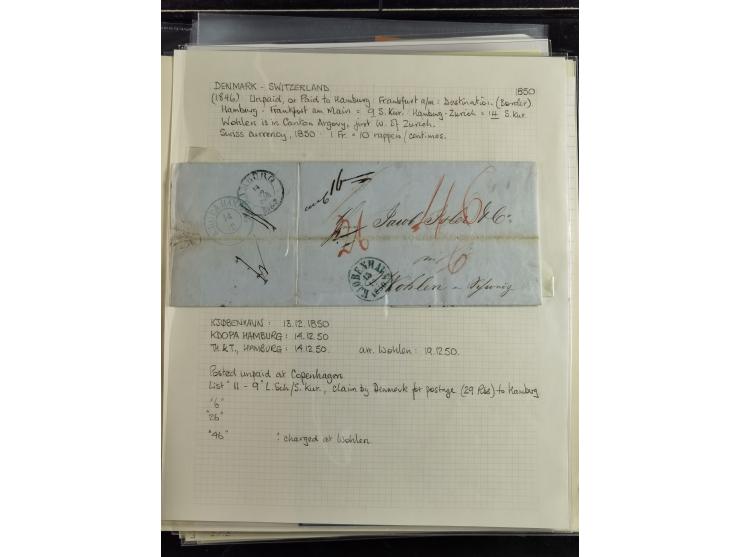 DENMARK - SWITZERLAND 1850
(1846) Unpaid, or Paid to Hamburg : Frankfurt a/m : Destination (Border)
Hamburg - Frankfurt am Main = 9 S.Kur. Hamburg-Zurich = 14 S.Kur.
Wohlen is in Canton Argovy, just W. of Zurich.
Swiss currency, 1850 · 1 Fr. = 10 rappen/centimes.
16
46
26
Jacob & Co
6
KJØBENHAVN
13
Wohlen
KJØBENHAVN : 13.12.1850
KDOPA HAMBURG : 14.12.50
TH.&T., HAMBURG : 14.12.50. arr. Wohlen : 19.12.50.
Posted unpaid at Copenhagen
List "11 - 9" L.Sch/S.Kur., claim by Denmark for postage (29 Rbs) to Hamburg
"6"
"26"
"46" : charged at Wohlen